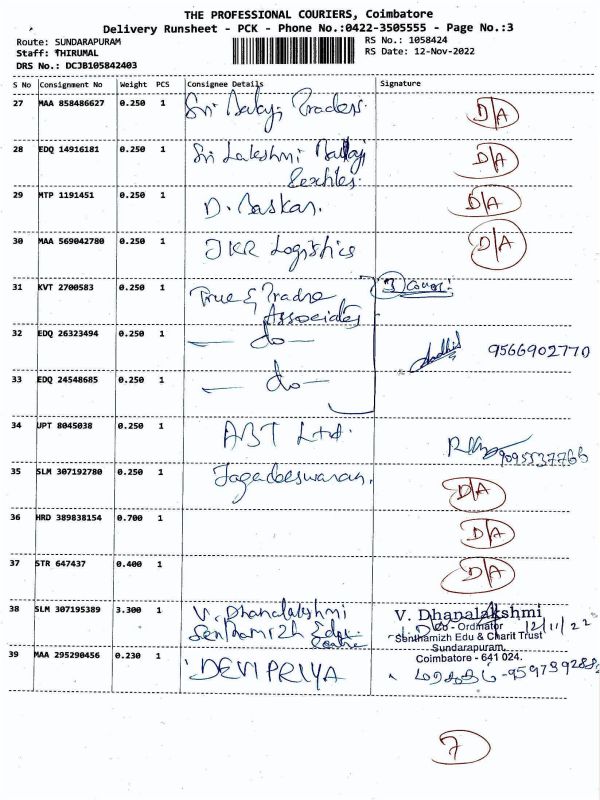 THE PROFESSIONAL COURIERS, Coimbatore
Delivery Runsheet - PCK - Phone No.:0422-3505555 - Page No.:3
Route: SUNDARAPURAM RS No.: 1058424
Staff: THIRUMAL RS Date: 12-Nov-2022
DRS No.: DCJB105842403
S No Consignment No Weight PCS Consignee Details Signature
27 MAA 858486627 0.250 1 Sri Balaji Traders. D/A
28 EDQ 14916181 0.250 1 Sri Lakshmi Balaji D/A
Textiles.
29 MTP 1191451 0.250 1 D. Baskar. D/A
30 MAA 569042780 0.250 1 JKR Logistics D/A
31 KVT 2700583 0.250 1 True & Tradre 3 Cover.
Associates
32 EDQ 26323494 0.250 1 — do — 9566902770
33 EDQ 24548685 0.250 1 — do —
34 UPT 8045038 0.250 1 ABT Ltd. 9095537766
35 SLM 307192780 0.250 1 Jagadeeswaran. D/A
36 HRD 389838154 0.700 1 D/A
37 STR 647437 0.400 1 D/A
38 SLM 307195389 3.300 1 V. Dhanalakshmi V. Dhanalakshmi
Senthamizh Edu. Co - Ordinator 12/11/22
Centre Senthamizh Edu & Charit Trust
Sundarapuram,
Coimbatore - 641 024.
39 MAA 295290456 0.230 1 DEVI PRIYA
7